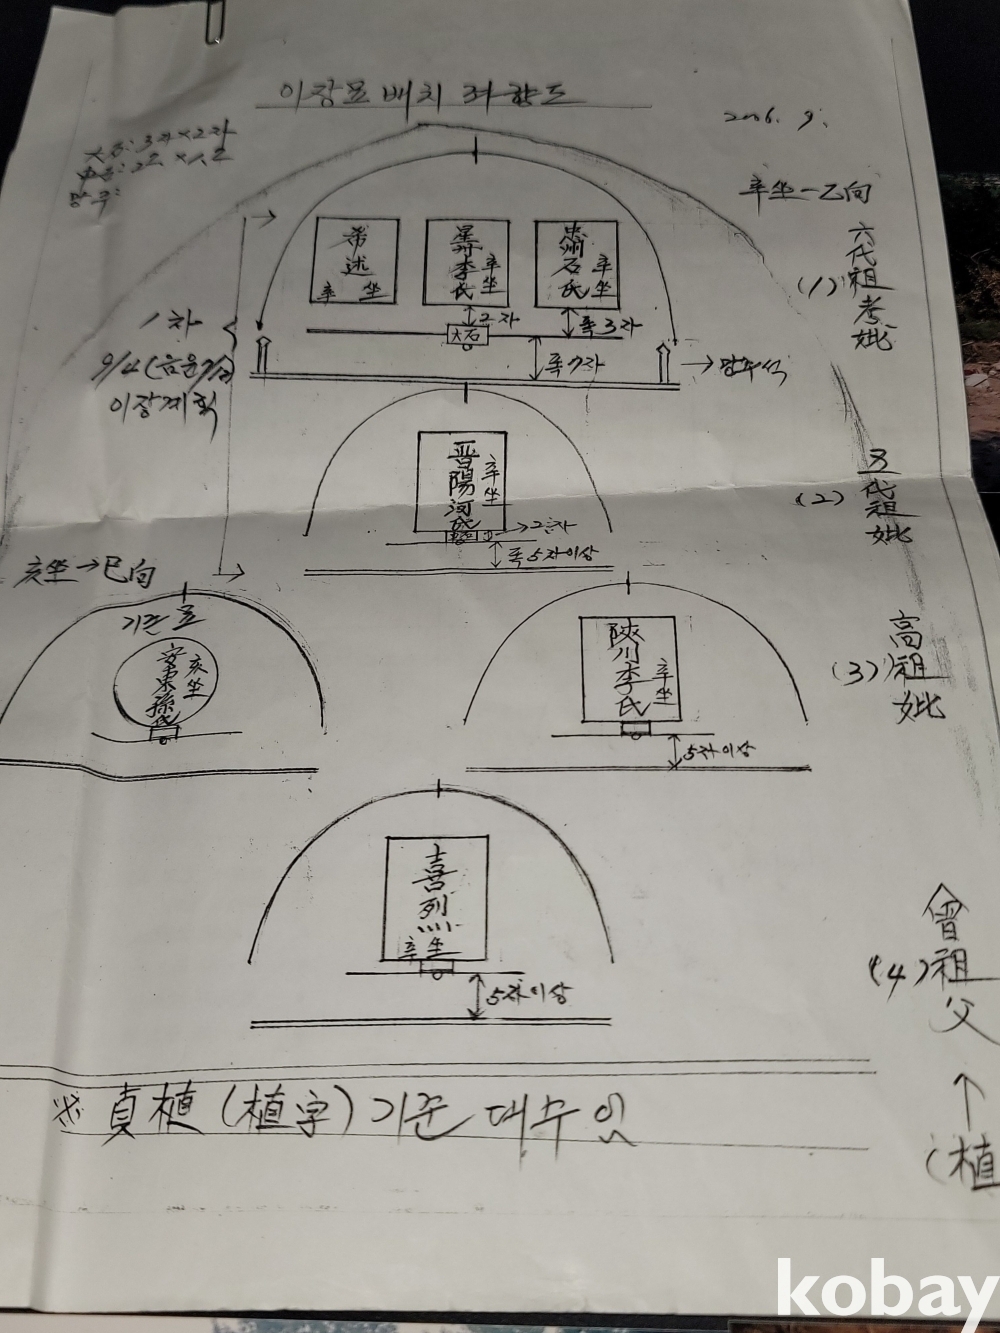 이장묘 배치 좌향도
2006. 9.
大石: 3자×2자
辛坐-乙向
希述
辛坐
星州李氏
辛坐
忠州石氏
辛坐
(1) 六代祖考妣
2자
大石
폭3자
폭7자
→망주석
1차
이장계획
晋陽河氏
辛坐
→2자
폭5자이상
(2) 五代祖妣
亥坐→巳向
기존묘
安東孫氏
亥坐
陜川李氏
辛坐
5자이상
(3) 高祖妣
喜烈
辛坐
5자이상
(4) 曾祖父
↑
(植
※ 貞植(植字) 기준 대수임
kobay